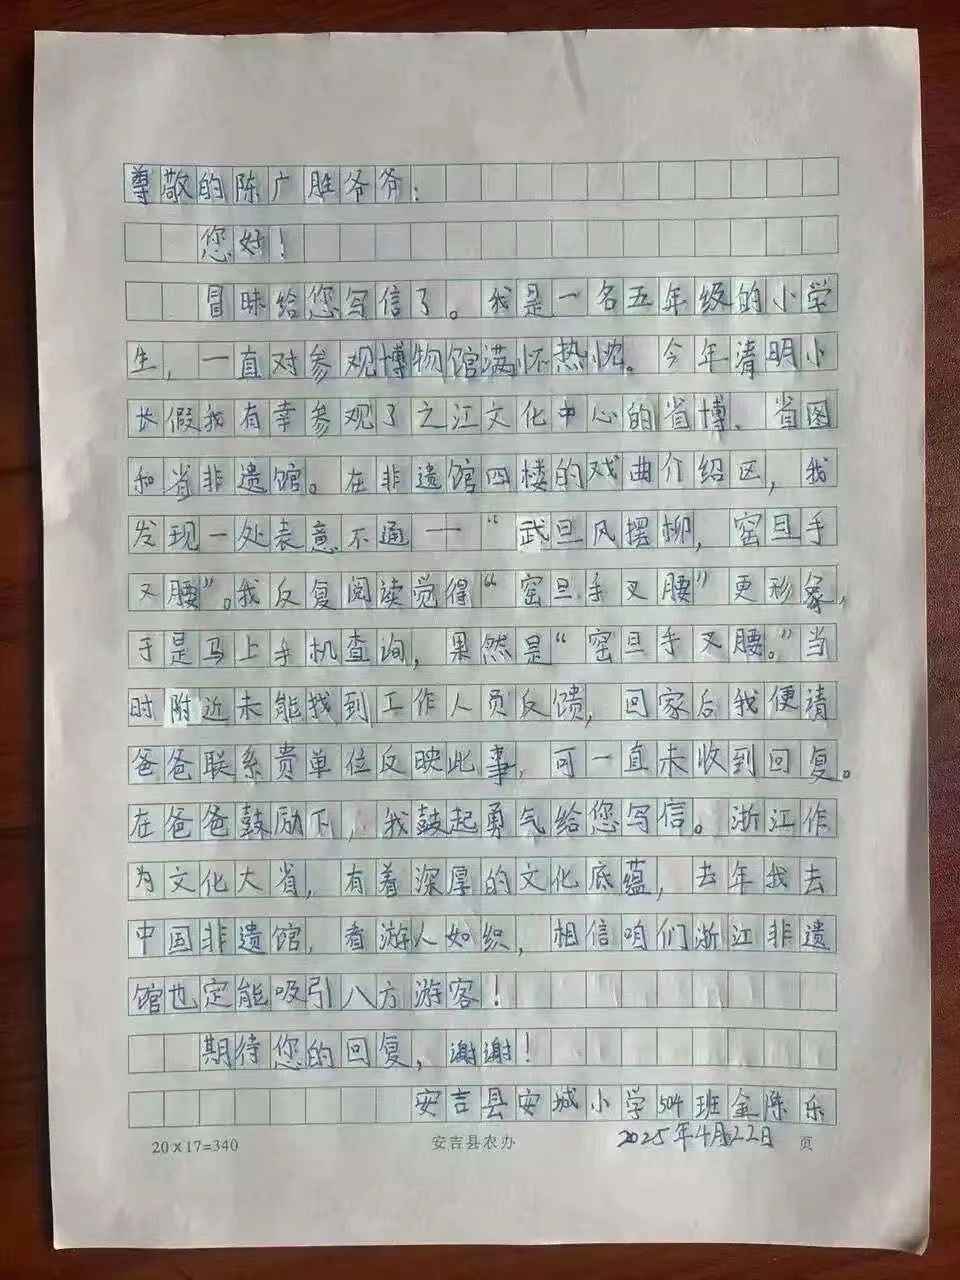 尊敬的陈广胜爷爷：
您好！
冒昧给您写信了。我是一名五年级的小学
生，一直对参观博物馆满怀热忱。今年清明小
长假我有幸参观了之江文化中心的省博、省图
和省非遗馆。在非遗馆四楼的戏曲介绍区，我
发现一处表意不通——“武旦风摆柳，窑旦手
叉腰”。我反复阅读觉得“窑旦手叉腰”更形象，
于是马上手机查询，果然是“窑旦手叉腰。”当
时附近未能找到工作人员反馈，回家后我便请
爸爸联系贵单位反映此事，可一直未收到回复。
在爸爸鼓励下，我鼓起勇气给您写信。浙江作
为文化大省，有着深厚的文化底蕴，去年我去
中国非遗馆，看游人如织，相信咱们浙江非遗
馆也定能吸引八方游客！
期待您的回复，谢谢！
安吉县安城小学504班金陈乐
2025年4月22日
20×17=340 安吉县农办 页